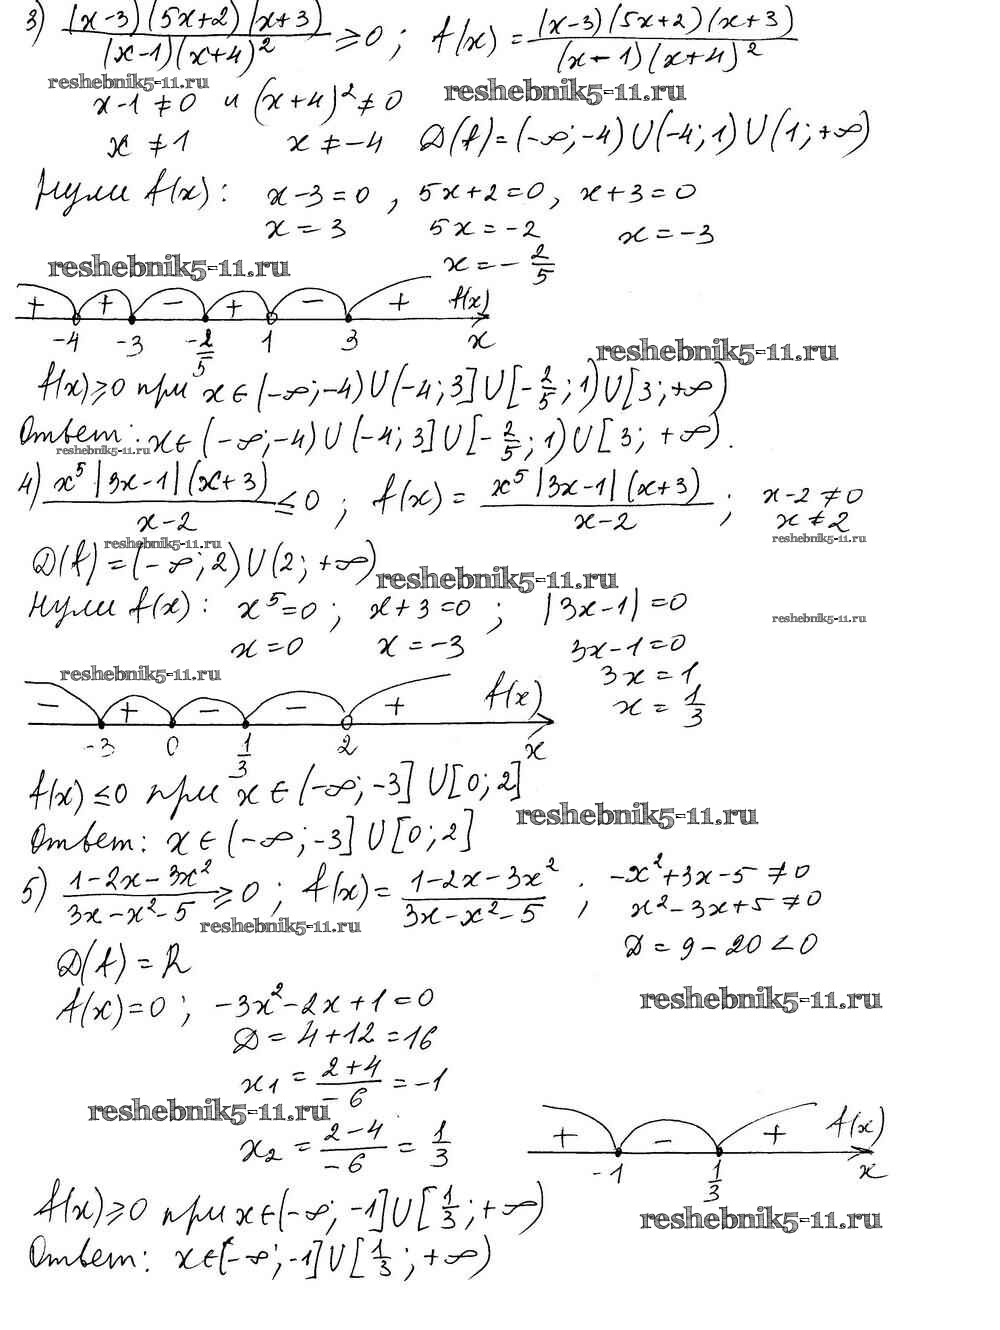 3) (x-3)(5x+2)(x+3) / (x-1)(x+4)² ≥ 0 ; f(x) = (x-3)(5x+2)(x+3) / (x-1)(x+4)²
reshebnik5-11.ru
reshebnik5-11.ru
x-1 ≠ 0 и (x+4)² ≠ 0
x ≠ 1 x ≠ -4 D(f) = (-∞; -4) U (-4; 1) U (1; +∞)
Нули f(x): x-3=0, 5x+2=0, x+3=0
x = 3 5x = -2 x = -3
reshebnik5-11.ru x = - 2/5
+ + - + - + f(x)
-4 -3 -2/5 1 3 x
reshebnik5-11.ru
f(x) ≥ 0 при x ∈ (-∞; -4) U (-4; 3] U [-2/5; 1) U [3; +∞)
Ответ: x ∈ (-∞; -4) U (-4; 3] U [-2/5; 1) U [3; +∞).
reshebnik5-11.ru
4) x⁵ |3x-1| (x+3) / x-2 ≤ 0 ; f(x) = x⁵ |3x-1| (x+3) / x-2 ; x-2 ≠ 0
x ≠ 2
reshebnik5-11.ru
reshebnik5-11.ru
D(f) = (-∞; 2) U (2; +∞)
reshebnik5-11.ru
Нули f(x): x⁵=0 ; x+3=0 ; |3x-1|=0
reshebnik5-11.ru
x=0 x=-3 3x-1=0
reshebnik5-11.ru 3x = 1
x = 1/3
- + - - + f(x)
-3 0 1/3 2 x
f(x) ≤ 0 при x ∈ (-∞; -3] U [0; 2]
reshebnik5-11.ru
Ответ: x ∈ (-∞; -3] U [0; 2]
5) 1-2x-3x² / 3x-x²-5 ≥ 0 ; f(x) = 1-2x-3x² / 3x-x²-5 ; -x²+3x-5 ≠ 0
x²-3x+5 ≠ 0
reshebnik5-11.ru
D = 9-20 < 0
D(f) = R
f(x)=0 ; -3x²-2x+1=0
reshebnik5-11.ru
D = 4+12 = 16
x1 = 2+4 / -6 = -1
reshebnik5-11.ru
x2 = 2-4 / -6 = 1/3
+ - + f(x)
-1 1/3 x
f(x) ≥ 0 при x ∈ (-∞; -1] U [1/3; +∞)
reshebnik5-11.ru
Ответ: x ∈ (-∞; -1] U [1/3; +∞)